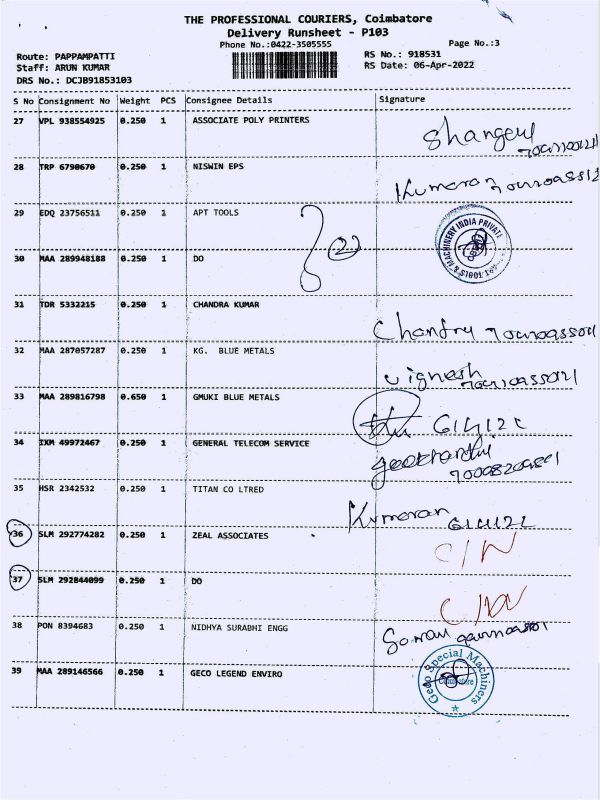 THE PROFESSIONAL COURIERS, Coimbatore
Delivery Runsheet - P103
Phone No.:0422-3505555
Page No.:3
Route: PAPPAMPATTI
RS No.: 918531
Staff: ARUN KUMAR
RS Date: 06-Apr-2022
DRS No.: DCJB91853103
S No Consignment No Weight PCS Consignee Details Signature
27 VPL 938554925 0.250 1 ASSOCIATE POLY PRINTERS
28 TRP 6790670 0.250 1 NISWIN EPS
Kumaran
29 EDQ 23756511 0.250 1 APT TOOLS
22
MACHINERY INDIA PRIVATE
30 MAA 289948188 0.250 1 DO
31 TDR 5332215 0.250 1 CHANDRA KUMAR
Chandru
32 MAA 287057287 0.250 1 KG. BLUE METALS
Vignesh
33 MAA 289816798 0.650 1 GMUKI BLUE METALS
6/4/22
34 IXM 49972467 0.250 1 GENERAL TELECOM SERVICE
35 HSR 2342532 0.250 1 TITAN CO LTRED
Kumaran 6/4/22
36 SLM 292774282 0.250 1 ZEAL ASSOCIATES
C/N
37 SLM 292844099 0.250 1 DO
38 PON 8394683 0.250 1 NIDHYA SURABHI ENGG
39 MAA 289146566 0.250 1 GECO LEGEND ENVIRO
Geco Special Machiners
Coimbatore